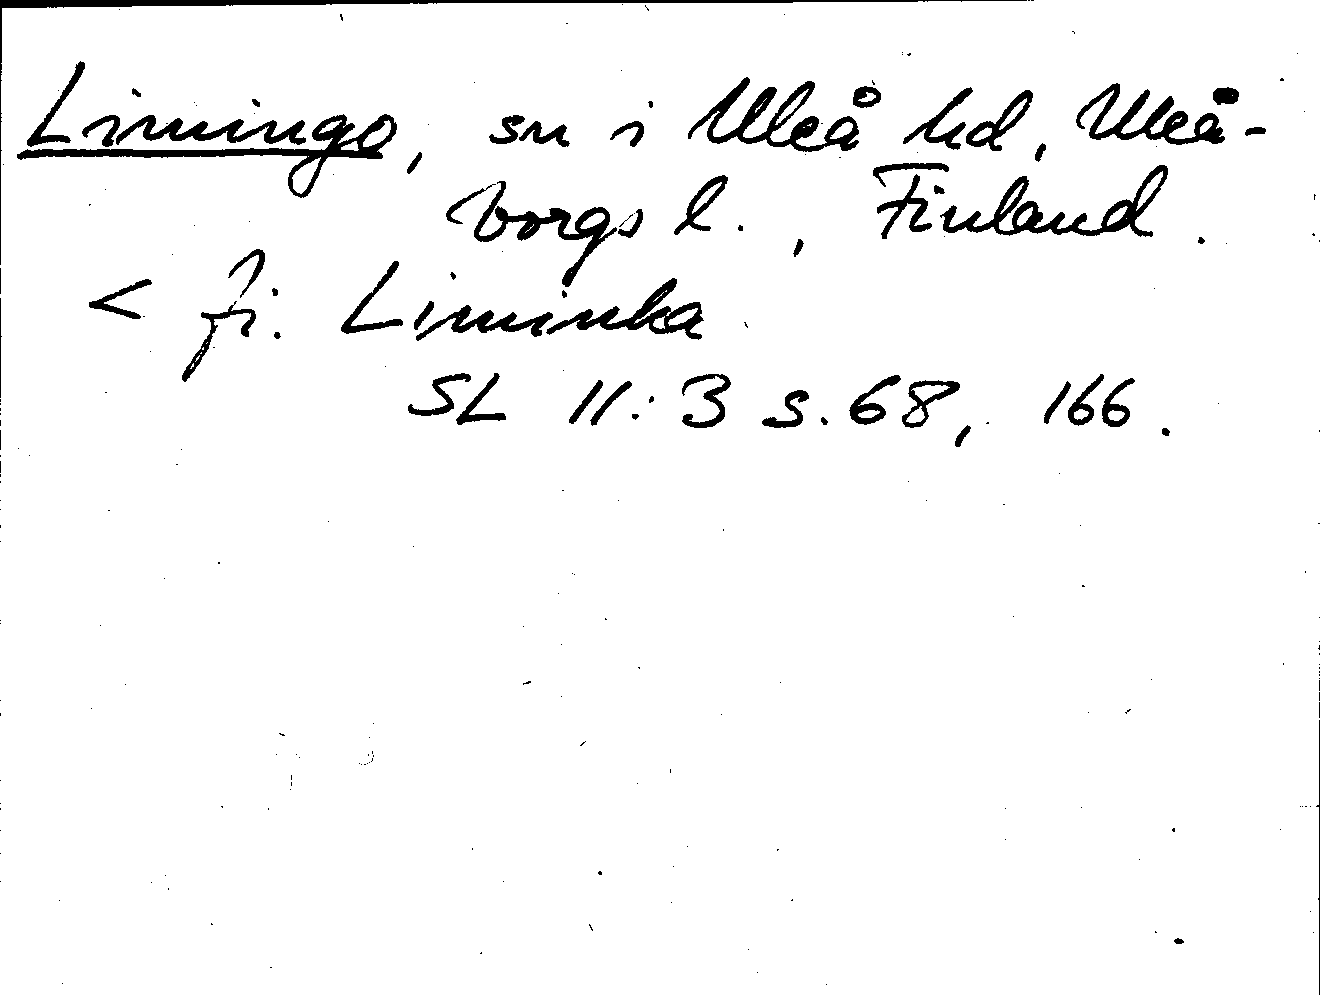 Limingo, sn i Uleå hd, Uleå-
borgs l., Finland.
< fi. Liminka
SL 11:3 s. 68, 166.